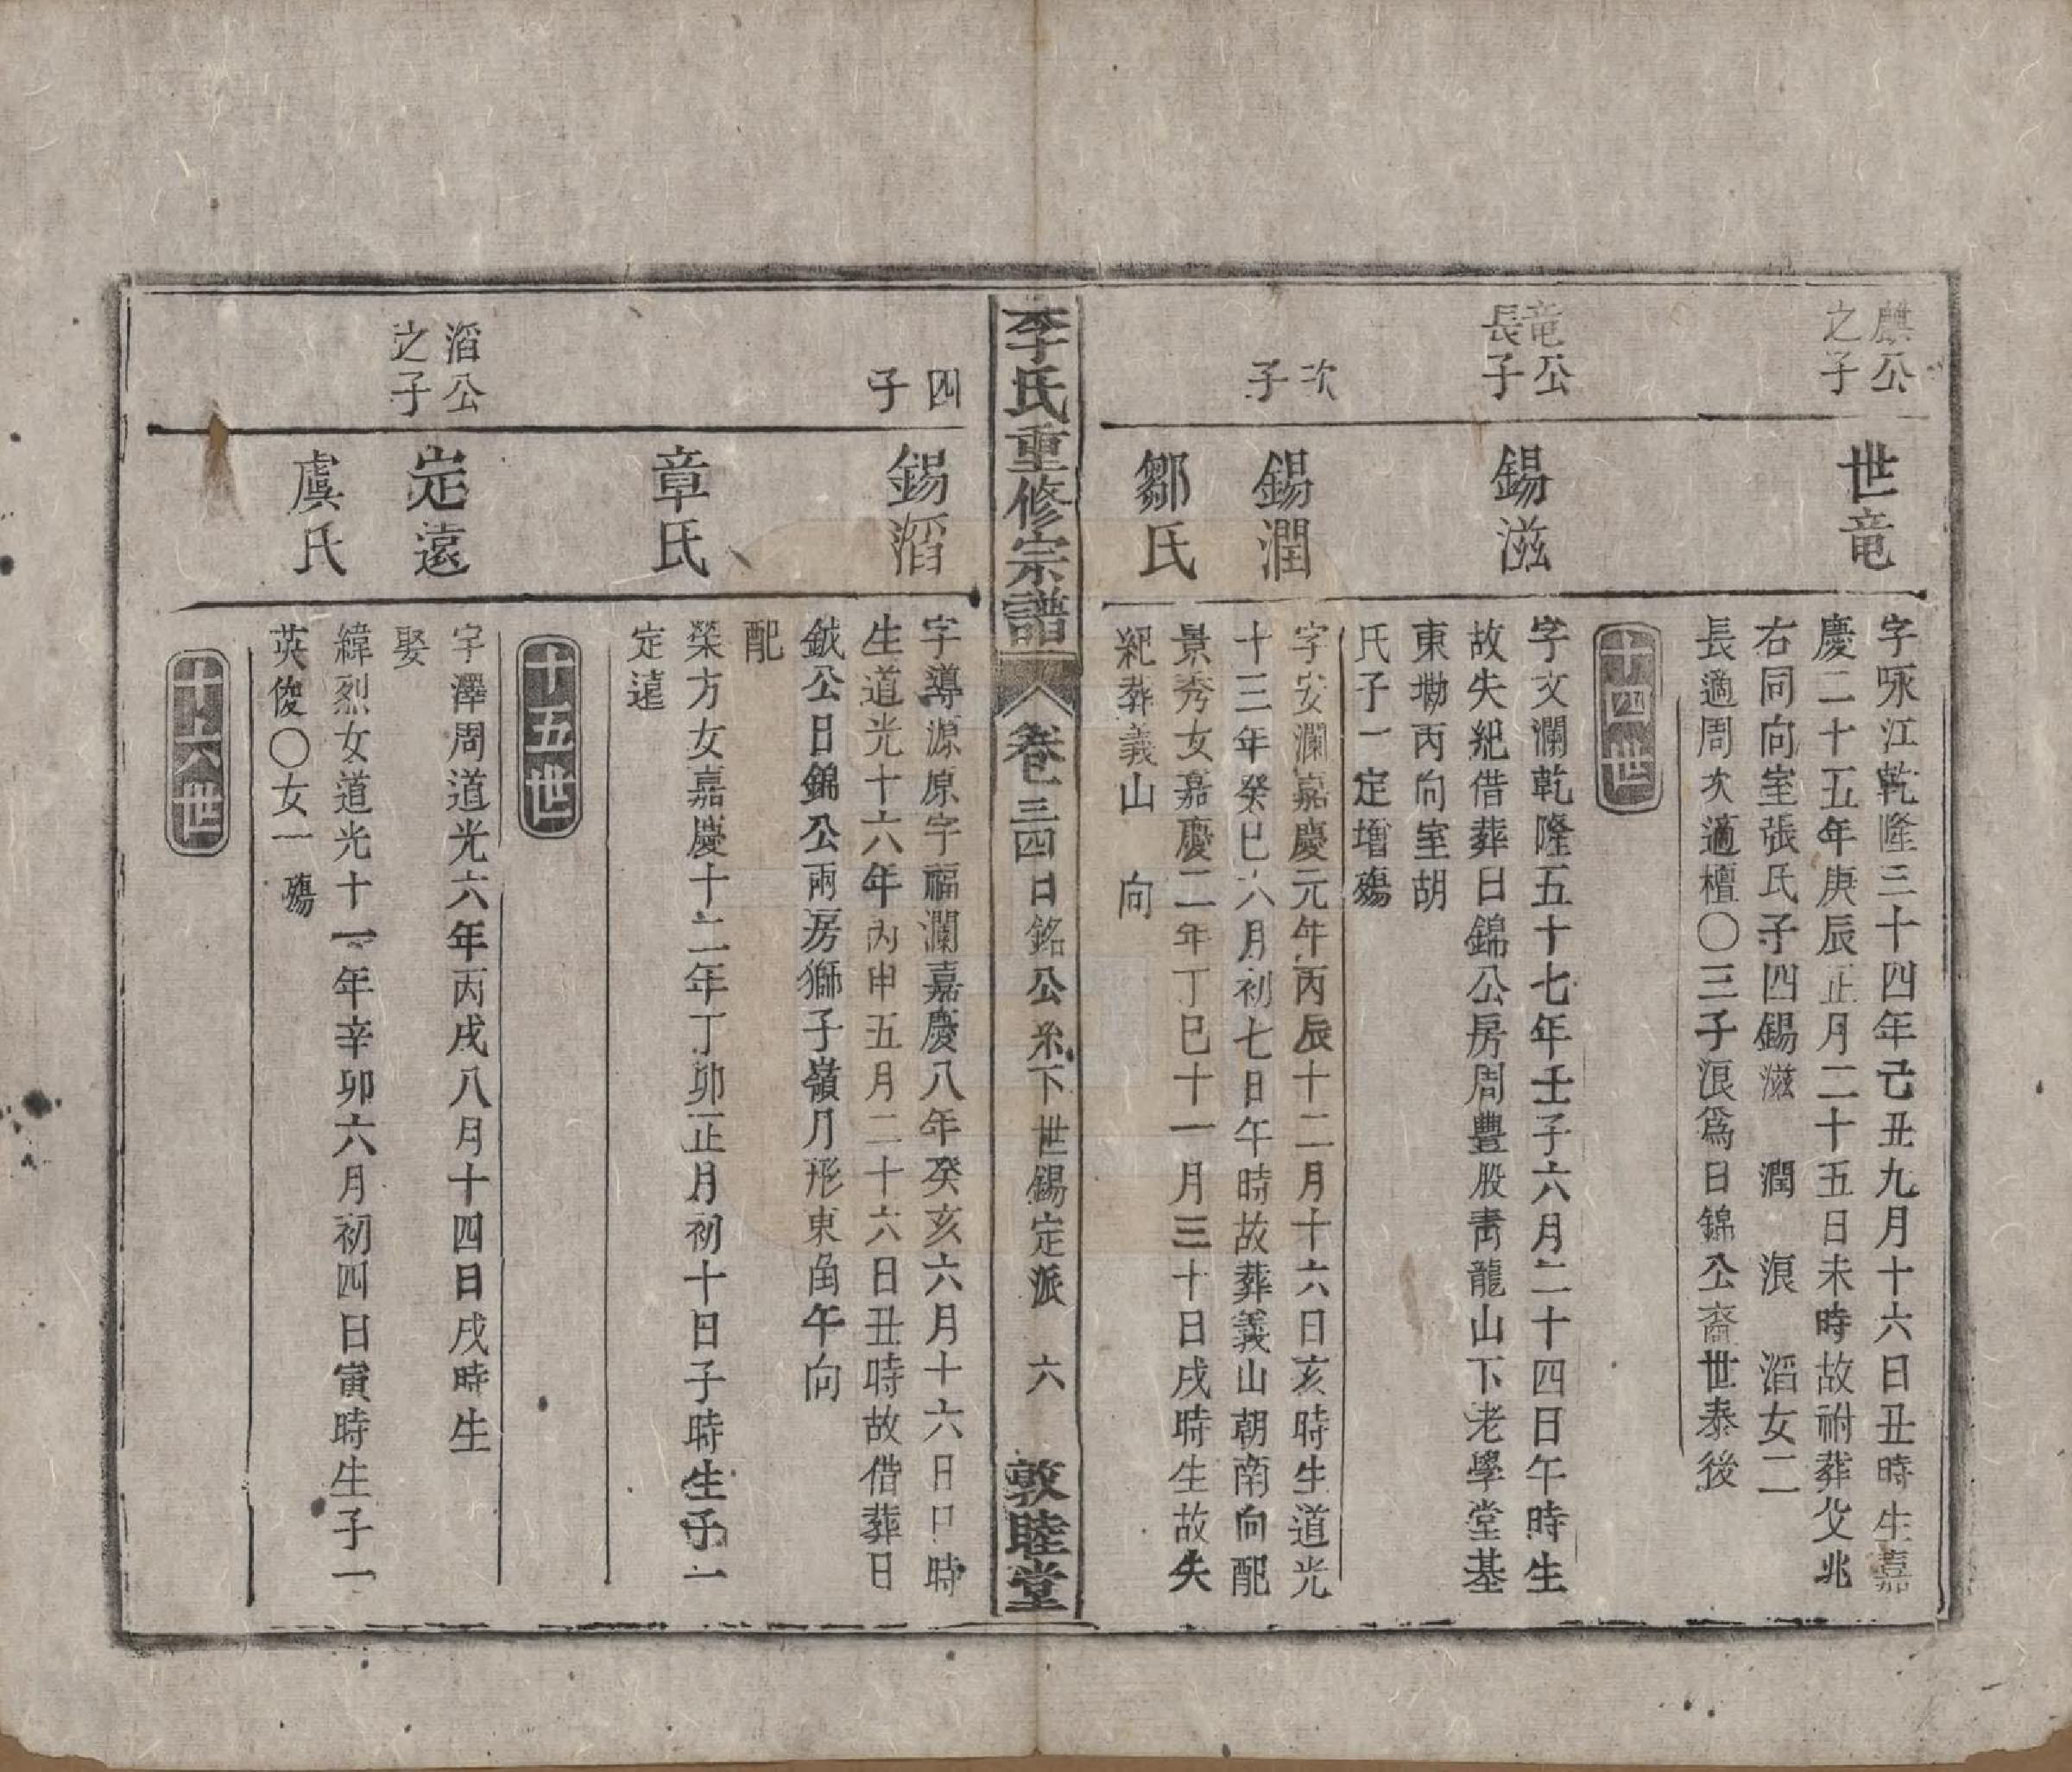 麒公
之子
世竜
字咏江乾隆三十四年己丑九月十六日丑時生嘉
慶二十五年庚辰正月二十五日未時故祔葬父兆
右同向室張氏子四錫滋 潤 浪 滔女二
長適周次適檀〇三子浪爲日錦公裔世泰後
十四世
竜公
長子
錫滋
字文瀾乾隆五十七年壬子六月二十四日午時生
故失紀借葬日錦公房周豊股靑龍山下老學堂基
東塝丙向室胡
氏子一定增殤
次
子
錫潤
字安瀾嘉慶元年丙辰十二月十六日亥時生道光
十三年癸巳六月初七日午時故葬義山朝南向配
鄒氏
景秀女嘉慶二年丁巳十一月三十日戌時生故失
紀葬義山 向
李氏重修宗譜
卷三四日銘公系下世錫定派 六
敦睦堂
四
子
錫滔
字導源原字福瀾嘉慶八年癸亥六月十六日口時
生道光十六年丙申五月二十六日丑時故借葬日
鉞公日錦公兩房獅子嶺月形東角午向
配
章氏
榮方女嘉慶十二年丁卯正月初十日子時生子一
定遠
十五世
滔公
之子
定遠
字澤周道光六年丙戌八月十四日戌時生
娶
虞氏
緯烈女道光十一年辛卯六月初四日寅時生子一
英俊〇女一殤
十六世